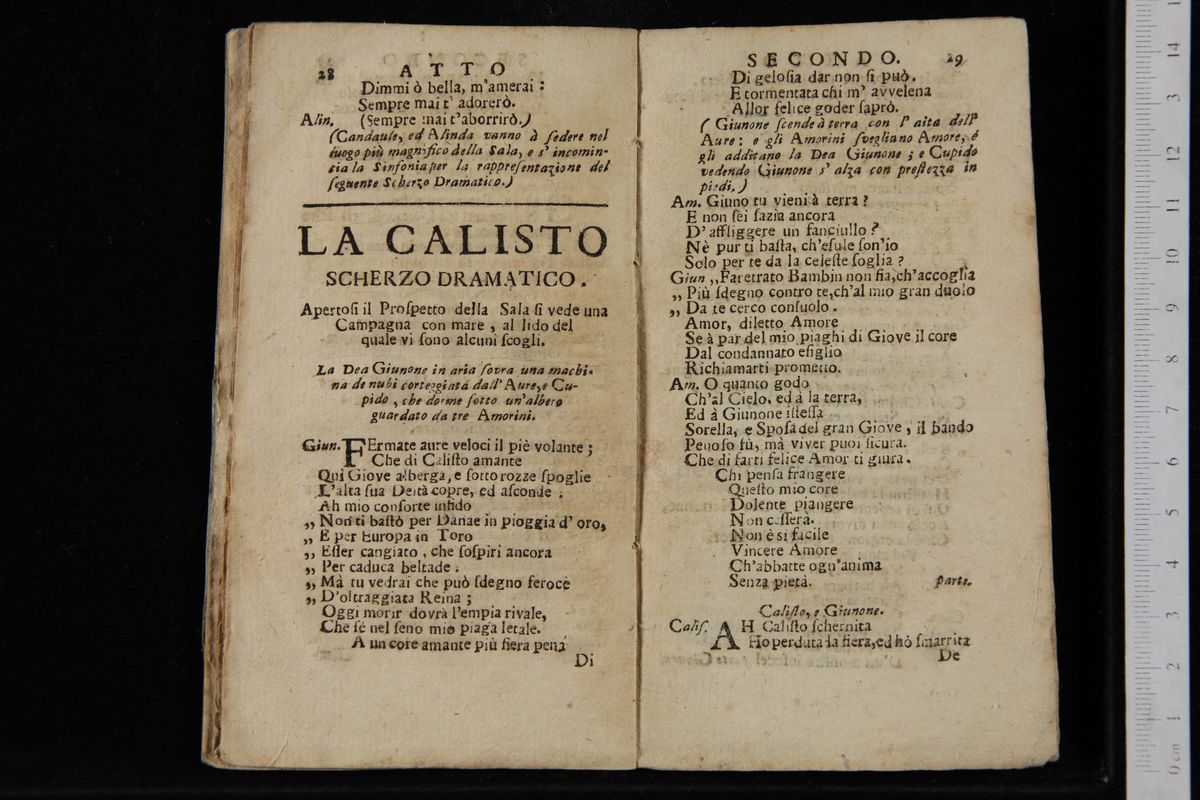 28 ATTO
Dimmi ò bella, m'amerai :
Sempre mai t'adorerò.
Alin. (Sempre mai t'aborrirò.)
(Candaule, ed Alinda vanno à ſedere nel
luogo più magnifico della Sala, e s' incomin-
cia la Sinfonia per la rappreſentazione del
ſeguente Scherzo Dramatico.)
LA CALISTO
SCHERZO DRAMATICO.
Apertoſi il Proſpetto della Sala ſi vede una
Campagna con mare , al lido del
quale vi ſono alcuni ſcogli.
La Dea Giunone in aria ſovra una machi-
na de nubi corteggiata dall' Aure, e Cu-
pido , che dorme ſotto un'albero
guardato da tre Amorini.
Giun. FErmate aure veloci il piè volante ;
Che di Caliſto amante
Qui Giove alberga, e ſotto rozze ſpoglie
L'alta ſua Deità copre, ed aſconde .
Ah mio conſorte infido
„ Non ti baſtò per Danae in pioggia d' oro,
„ E per Europa in Toro
„ Eſſer cangiato , che ſoſpiri ancora
„ Per caduca beltade .
„ Mà tu vedrai che può ſdegno feroce
„ D'oltraggiata Reina ;
Oggi morir dovrà l'empia rivale,
Che fè nel ſeno mio piaga letale.
A un core amante più fiera pena
Di
SECONDO. 29
Di geloſia dar non ſi può.
E tormentata chi m' avvelena
Allor felice goder ſaprò.
( Giunone ſcende à terra con l' aita dell'
Aure : e gli Amorini ſvegliano Amore, e
gli additano la Dea Giunone ; e Cupido
vedendo Giunone s' alza con preſtezza in
piedi. )
Am. Giuno tu vieni à terra ?
E non ſei ſazia ancora
D' affliggere un fanciullo ?
Nè pur ti baſta, ch'eſule ſon'io
Solo per te da la celeſte ſoglia ?
Giun „Faretrato Bambin non fia, ch'accoglia
„ Più ſdegno contro te, ch'al mio gran duolo
„ Da te cerco conſuolo .
Amor, diletto Amore
Se à par del mio piaghi di Giove il core
Dal condannato eſiglio
Richiamarti prometto.
Am. O quanto godo
Ch'al Cielo, ed à la terra,
Ed à Giunone iſteſſa
Sorella, e Spoſa del gran Giove , il bando
Penoſo fù, mà viver puoi ſicura.
Che di farti felice Amor ti giura .
Chi penſa frangere
Queſto mio core
Dolente piangere
Non ceſſerà.
Non è sì facile
Vincere Amore
Ch'abbatte ogn'anima
Senza pietà. parte.
Caliſto, e Giunone.
Caliſ. AH Caliſto ſchernita
Ho perduta la fiera, ed hò ſmarrita
De
14
13
12
11
10
9
8
7
6
5
4
3
2
1
0 cm